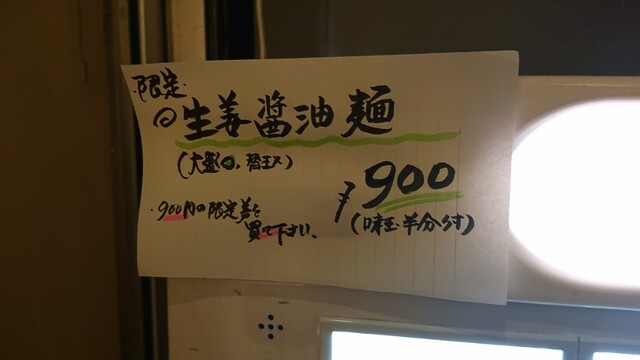 限定
◎生姜醤油麺
(大盛○、替玉×)
¥900
(味玉半分付)
・900円の限定券を
買って下さい、